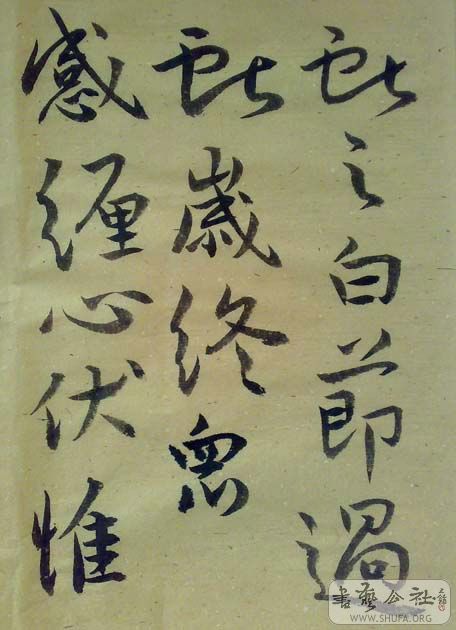 獻之白節過
獻歲終眾
感纏心伏惟
書藝公社
WWW.SHUFA.ORG